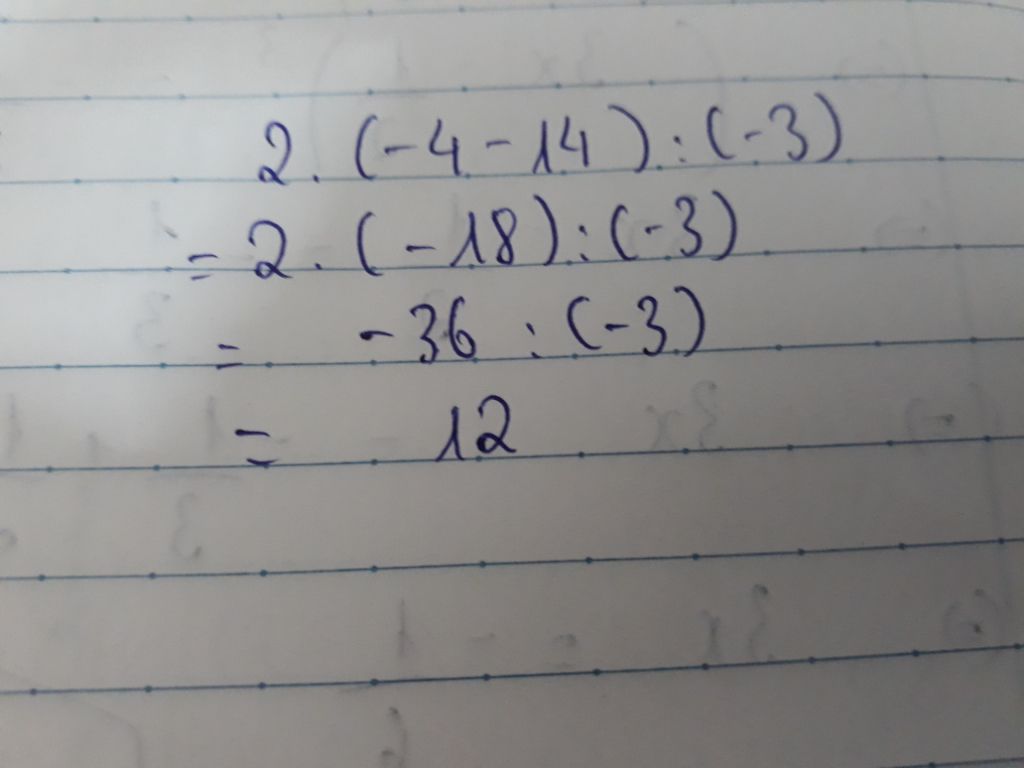 2. (-4-14):(-3)
= 2. (-18):(-3)
= -36 : (-3)
= 12